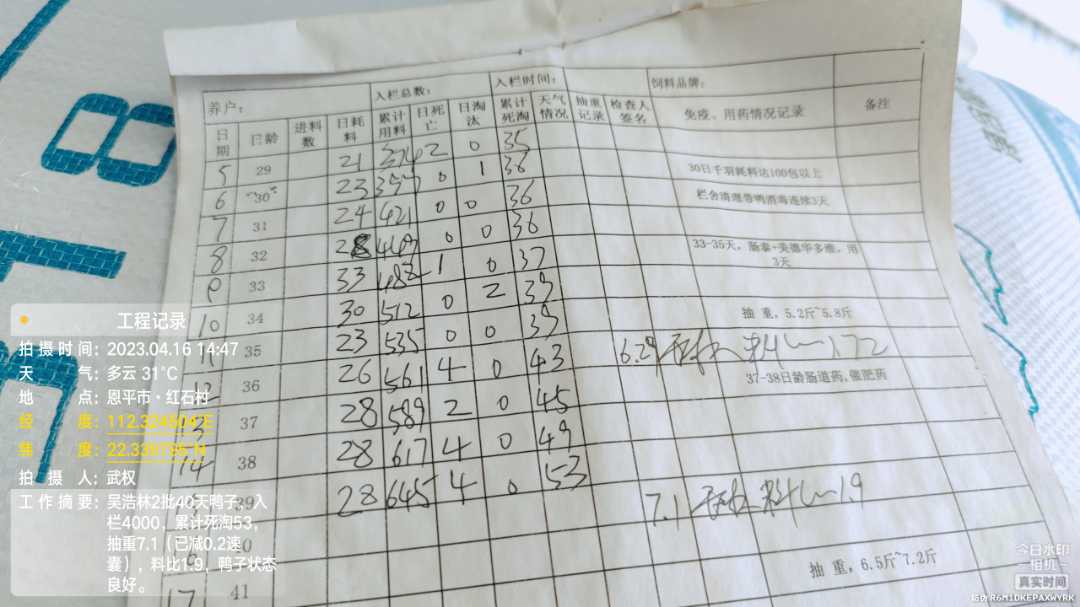 718
养户： 入栏总数： 入栏时间： 饲料品牌：
日期 日龄 进料数 日耗料 累计用料 日死亡 日淘汰 累计死淘 天气情况 抽重记录 检查人签名 免疫、用药情况记录 备注
5 29 21 374 2 0 35
30日千羽耗料达100包以上
6 30 23 397 0 1 36
栏舍清理带鸭消毒连续3天
7 31 24 421 0 0 36
8 32 28 449 0 0 36
33-35天，肠泰+美德华多维，用3天
9 33 33 482 1 0 37
10 34 30 512 0 2 39
抽 重，5.2斤~5.8斤
11 35 23 535 0 0 39
6.29 料 1.72
12 36 26 561 4 0 43
37-38日龄肠道药，催肥药
13 37 28 589 2 0 45
14 38 28 617 4 0 49
39 28 645 4 0 53
7.1 料 1.9
40
抽 重，6.5斤~7.2斤
17 41
工程记录
拍摄时间：2023.04.16 14:47
天 气：多云 31℃
地 点：恩平市·红石村
经 度：112.324504°E
纬 度：22.339795°N
拍 摄 人：武权
工作摘要：吴浩林2批40天鸭子，入
栏4000，累计死淘53，
抽重7.1（已减0.2速
囊），料比1.9，鸭子状态
良好。
今日水印
相机
真实时间